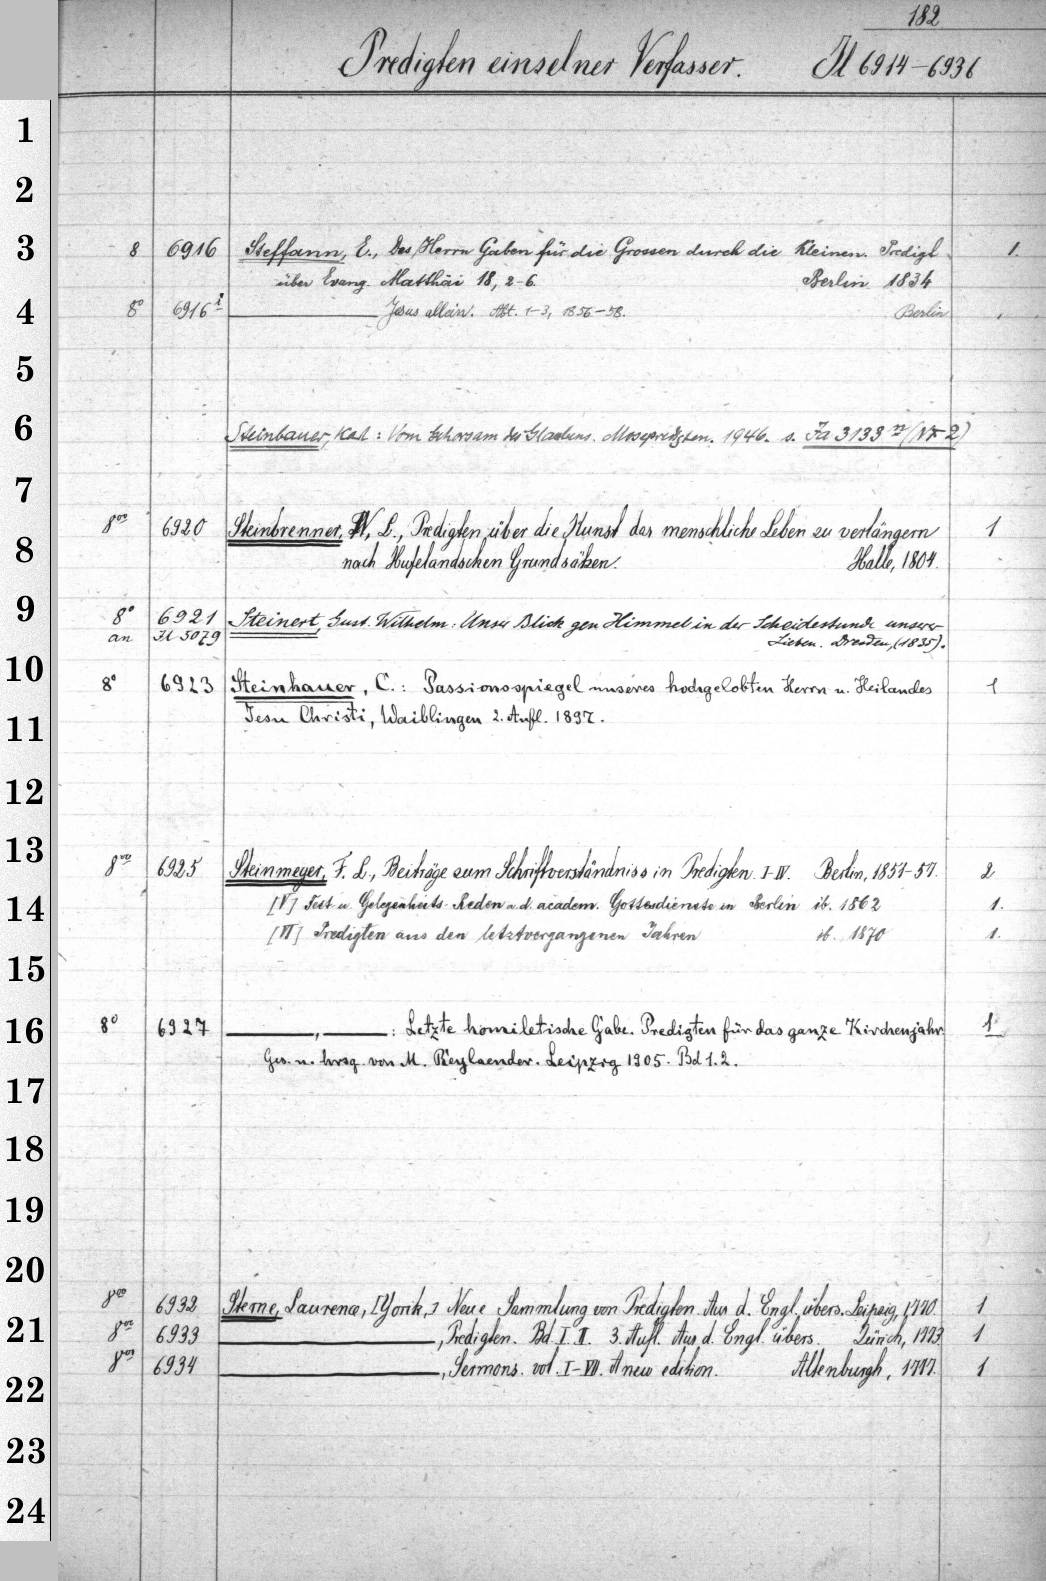 182
Predigten einzelner Verfasser. Il 6914-6936
1
2
3 8 6916 Steffann, E., Des Herrn Gaben für die Grossen durch die Kleinen. Predigt 1.
über Evang. Matthäi 18, 2-6. Berlin 1834
4 8° 6916 Jesus allein. Abt. 1-3, 1856-58. Berlin
5
6 Steinbauer, Karl: Vom Gehorsam des Glaubens. Mosepredigten. 1946. s. Ja 3133 (Nr 2)
7
8vo 6920 Steinbrenner, W. L., Predigten über die Kunst das menschliche Leben zu verlängern 1
8 nach Hufelandschen Grundsätzen. Halle, 1804.
9 8° 6921 Steinert, Gust. Wilhelm: Unser Blick gen Himmel in der Scheidestunde unserer
an Il 5079 Lieben. Dresden, (1835).
10 8° 6923 Steinhauer, C.: Passionsspiegel unseres hochgelobten Herrn u. Heilandes 1
11 Jesu Christi, Waiblingen 2. Aufl. 1897.
12
13 8vo 6925 Steinmeyer, F. L., Beiträge zum Schriftverständniss in Predigten. I-IV. Berlin, 1851-57. 2
14 [V] Fest u. Gelegenheits-Reden a. d. academ. Gottesdienste in Berlin ib. 1862 1.
[VI] Predigten aus den letztvergangenen Jahren ib. 1870 1.
15
16 8° 6927 ——, ——: Letzte homiletische Gabe. Predigten für das ganze Kirchenjahr. 1
Ges. u. hrsg. von M. Reylaender. Leipzig 1905. Bd 1. 2.
17
18
19
20
8vo 6932 Sterne, Laurence, [Yorik,] Neue Sammlung von Predigten. Aus d. Engl. übers. Leipzig, 1770. 1
21 8vo 6933 ——, Predigten. Bd. I. II. 3. Aufl. Aus d. Engl. übers. Zürich, 1773. 1
8vo 6934 ——, Sermons. vol. I-VII. A new edition. Altenburgh, 1777. 1
22
23
24